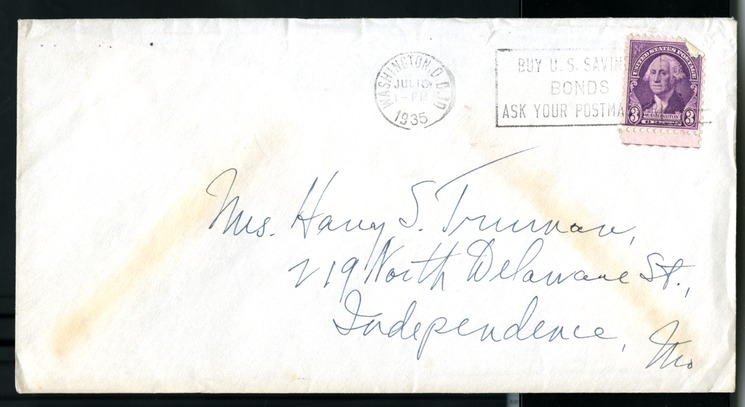 WASHINGTON, D.C.
JUL 15
1-PM
1935
BUY U.S. SAVIN
BONDS
ASK YOUR POSTMA
UNITED STATES POSTAGE
3 WASHINGTON 3
Mrs. Harry S. Truman,
219 North Delaware St.,
Independence, Mo